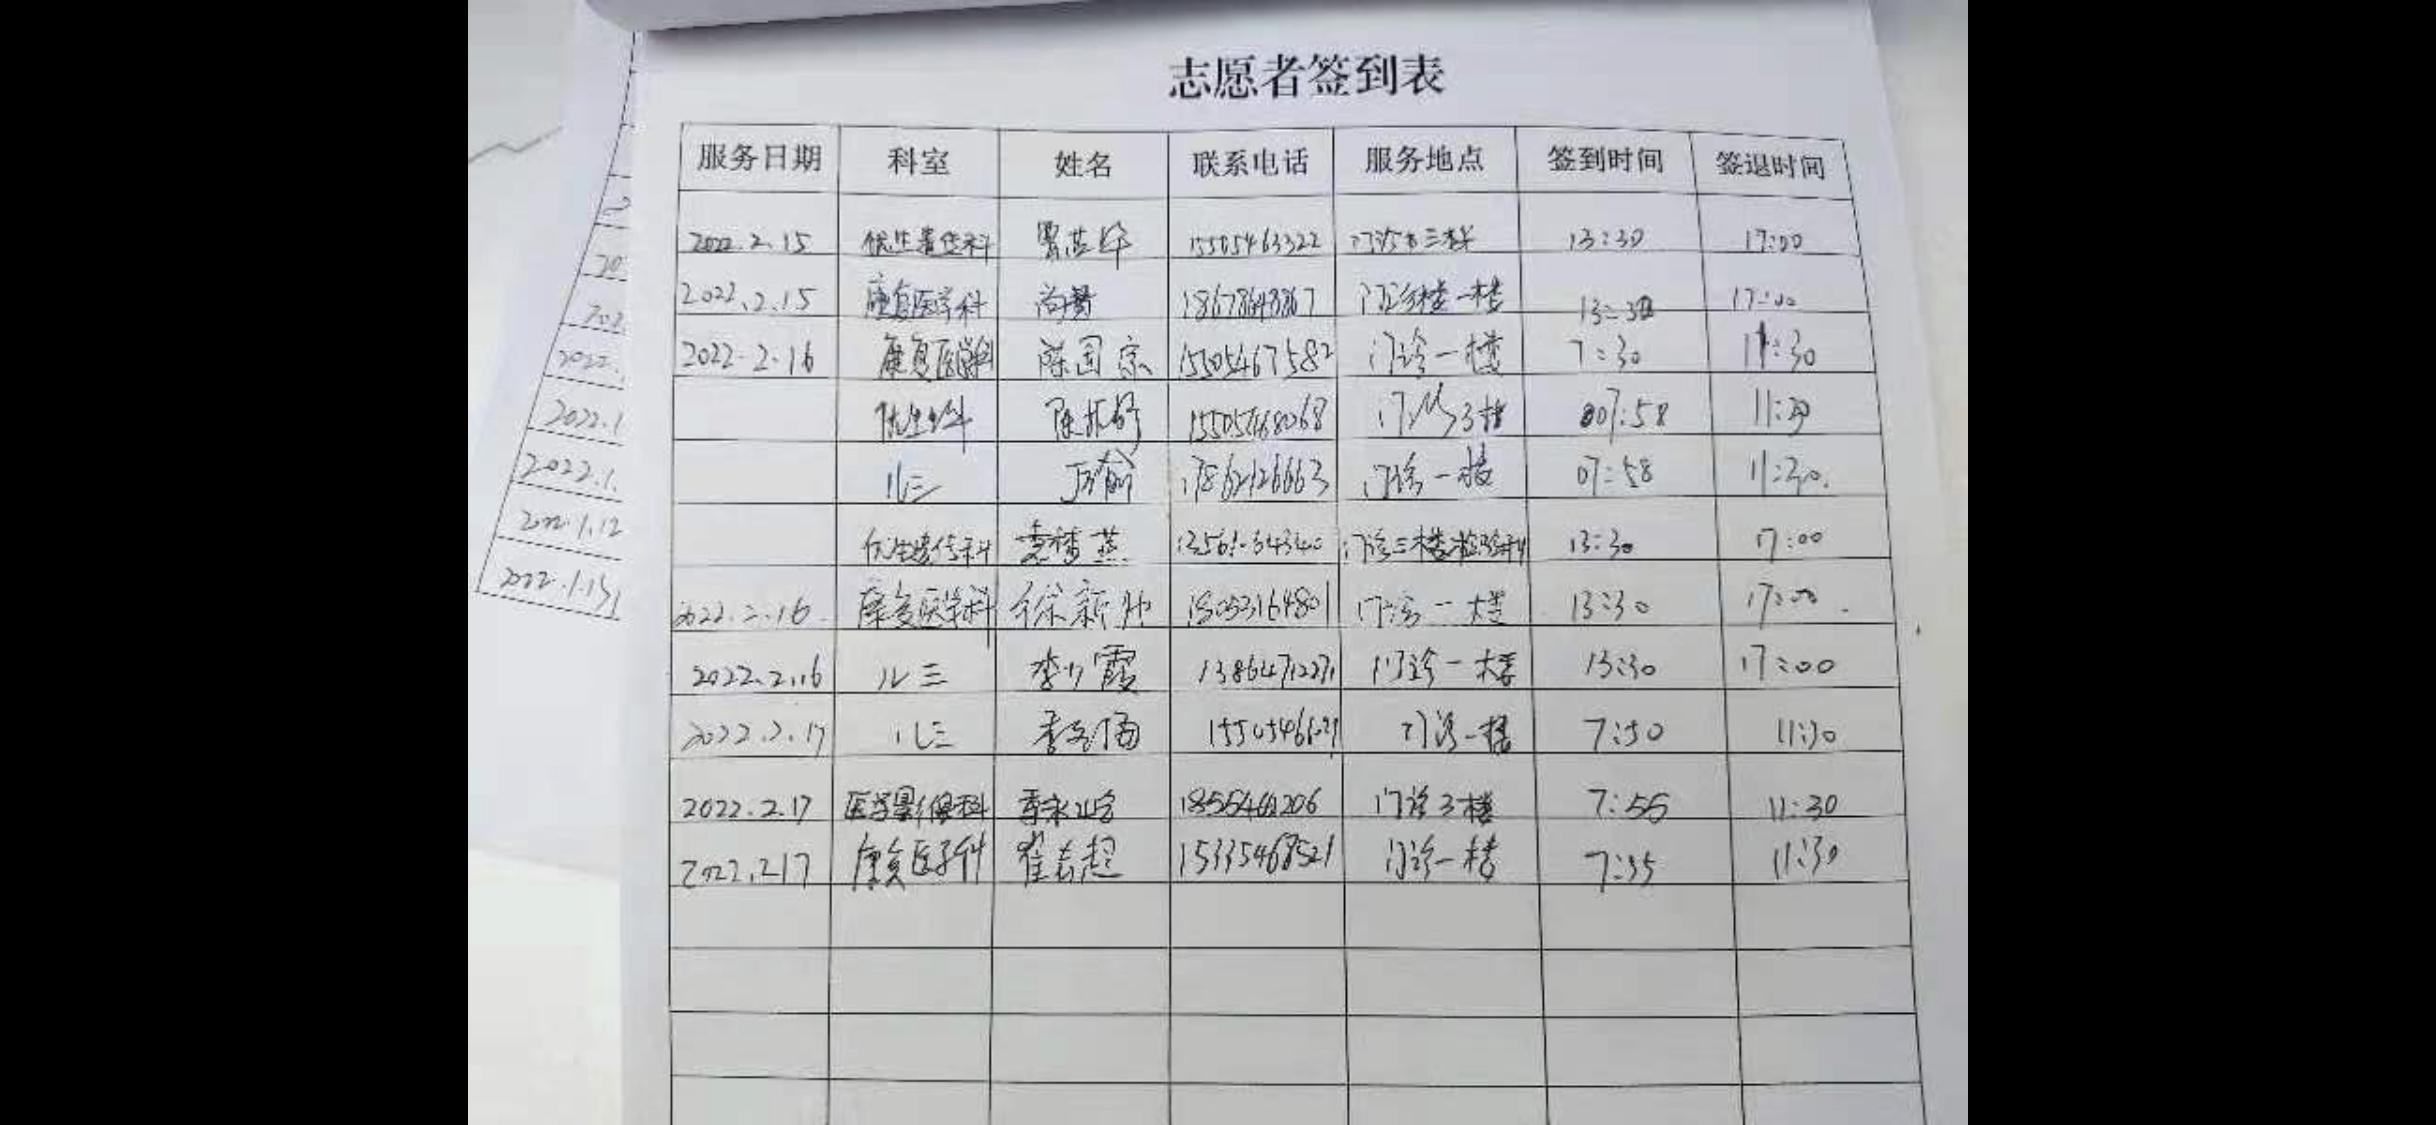 志愿者签到表
服务日期 科室 姓名 联系电话 服务地点 签到时间 签退时间
2022.2.15 优生遗传科 15505463322 13:30 17:00
2022.2.15 康复医学科 尚 18678648867 门诊楼一楼 17:00
2022.2.16 康复医学科 陈国宗 15505467582 门诊一楼 7:30 11:30
陈 15505468068 门诊3楼 07:58 11:30
儿三 17862126663 门诊一楼 07:58 11:30.
优生遗传科 门诊三楼检验科 13:30 17:00
2022.2.16. 康复医学科 徐新 18053164801 门诊一楼 13:30 17:00
2022.2.16 儿三 李 霞 门诊一楼 13:30 17:00
2022.2.17 儿三 门诊一楼 7:50 11:30
2022.2.17 医学影像科 门诊3楼 7:55 11:30
2022.2.17 康复医学科 崔志超 15335468521 门诊一楼 7:55 11:30
2022.
2022.1
2022.1.
2022.1.12
2022.1.13